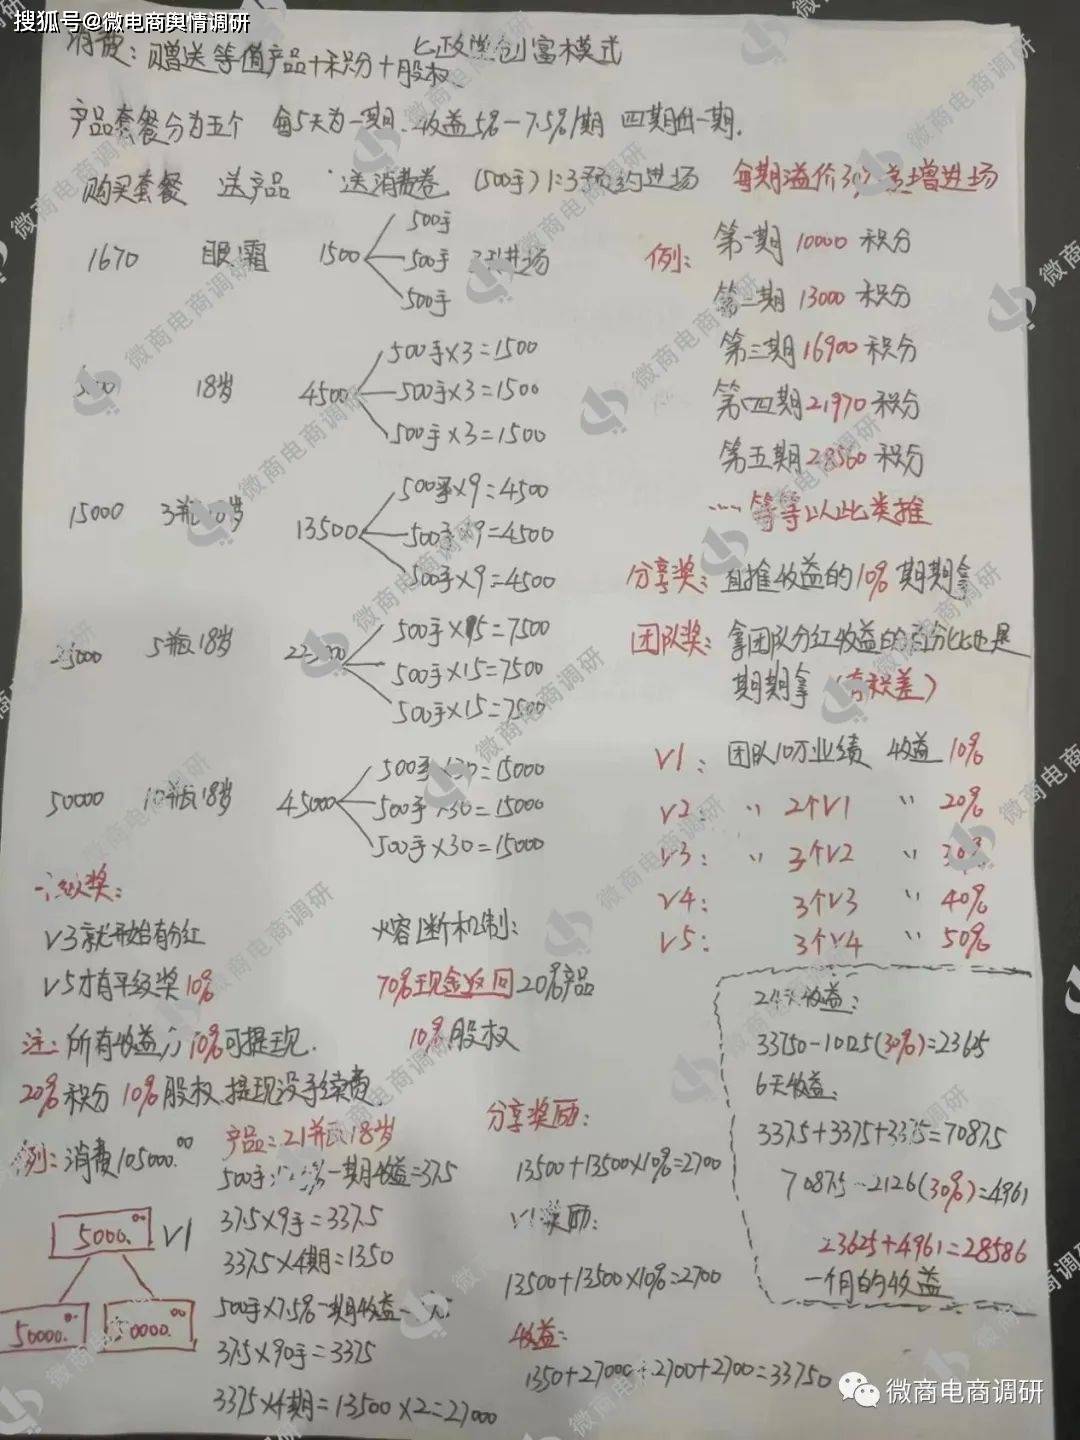 搜狐号@微电商舆情调研
创富模式
消费：赠送等值产品+积分+股权
产品套餐分为五个 每5天为一期、收益5%-7.5%/期 四期出一期.
购买套餐 送产品 送消费卷 (500手) 1:3预约进场 每期溢价 增进场
1670 眼霜 1500 500手
500手 进场
500手
18岁 4500 500手×3=1500
500手×3=1500
500手×3=1500
15000 3瓶 岁 13500 500手×9=4500
500手×9=4500
500手×9=4500
5瓶18岁 500手×15=7500
500手×15=7500
500手×15=7500
50000 10瓶18岁 45000 500手×30=15000
500手×30=15000
500手×30=15000
例：
第一期 10000 积分
第二期 13000 积分
第三期 16900 积分
第四期 21970 积分
第五期 28560 积分
…… 等等以此类推
分享奖：直推收益的10% 期期拿
团队奖：拿团队分红收益的百分比也是
期期拿 (有积差)
V1：团队10万业绩 收益 10%
V2： 〃 2个V1 〃 20%
V3： 〃 3个V2 〃 30%
V4： 3个V3 〃 40%
V5： 3个V4 〃 50%
级奖：
V3就开始有分红
V5才有平级奖10%
熔断机制：
70%现金返回 20%产品
10%股权
注：所有收益 可提现.
20%积分 10%股权、提现没手续费.
例：消费105000.00
5000.00 V1
50000.00 50000.00
产品：21瓶18岁
500手 一期收益=37.5
37.5×9手=337.5
337.5×4期=1350
500手×7.5%一期收益
37.5×90手=3375
3375×4期=13500×2=27000
分享奖励：
13500+13500×10%=2700
V1奖励：
13500+13500×10%=2700
收益：
1350+27000+2700+2700=33750
24天收益：
33750-10125(30%)=23625
6天收益：
337.5+3375+3375=7087.5
7087.5-2126(30%)=4961
23625+4961=28586
一个月的收益
微商电商调研